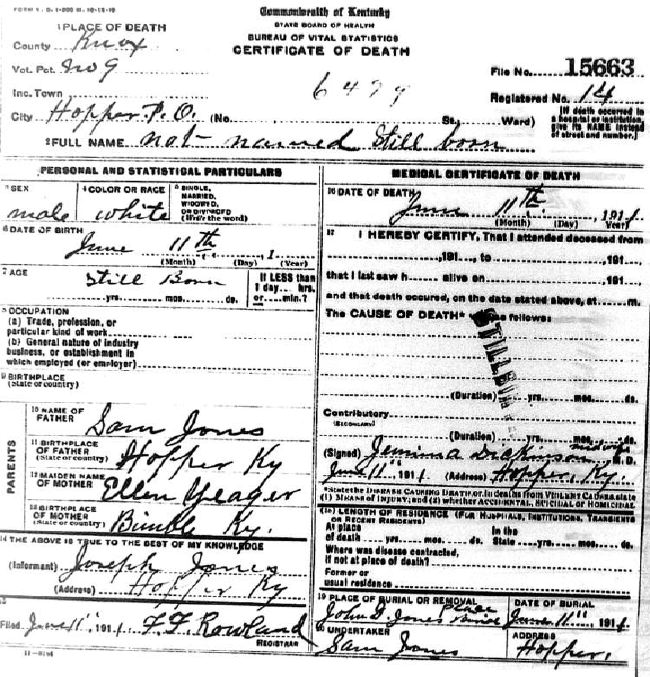 Commonwealth of Kentucky
STATE BOARD OF HEALTH
BUREAU OF VITAL STATISTICS
CERTIFICATE OF DEATH
1 PLACE OF DEATH
County Knox
Vot. Pct. No 9
Inc. Town
City Hopper P.O. (No. St., Ward)
6479
File No. 15663
Registered No. 14
[If death occurred in a hospital or institution, give its NAME instead of street and number.]
2 FULL NAME not named Still born
PERSONAL AND STATISTICAL PARTICULARS
3 SEX male
4 COLOR OR RACE white
5 SINGLE, MARRIED, WIDOWED, OR DIVORCED (Write the word)
6 DATE OF BIRTH
June 11th 1
(Month) (Day) (Year)
7 AGE Still Born
yrs. mos. ds.
If LESS than 1 day hrs. or min.?
8 OCCUPATION
(a) Trade, profession, or
particular kind of work
(b) General nature of industry
business, or establishment in
which employed (or employer)
9 BIRTHPLACE
(State or country)
PARENTS
10 NAME OF FATHER Sam Jones
11 BIRTHPLACE OF FATHER (State or country) Hopper, Ky
12 MAIDEN NAME OF MOTHER Ellen Yeager
13 BIRTHPLACE OF MOTHER (State or country) Bimble Ky.
14 THE ABOVE IS TRUE TO THE BEST OF MY KNOWLEDGE
(Informant) Joseph Jones
(Address) Hopper Ky
15
Filed June 11", 1911 F. F. Rowland
REGISTRAR
MEDICAL CERTIFICATE OF DEATH
16 DATE OF DEATH
June 11th, 1911
(Month) (Day) (Year)
17 I HEREBY CERTIFY, That I attended deceased from
, 191 , to , 191 ,
that I last saw h alive on , 191 ,
and that death occured, on the date stated above, at m.
The CAUSE OF DEATH was as follows
STILLBORN
(Duration) yrs. mos. ds.
Contributory
(SECONDARY)
(Duration) yrs. mos. ds.
(Signed) Jemima Dickinson midwife M.D.
June 11", 1911 (Address) Hopper, Ky.
*State the DISEASE CAUSING DEATH, or, in deaths from VIOLENT CAUSES, state
(1) MEANS OF INJURY; and (2) whether ACCIDENTAL, SUICIDAL or HOMICIDAL
18 LENGTH OF RESIDENCE (FOR HOSPITALS, INSTITUTIONS, TRANSIENTS
OR RECENT RESIDENTS)
At place of death yrs. mos. ds. In the State yrs. mos. ds.
Where was disease contracted,
if not at place of death?
Former or
usual residence
19 PLACE OF BURIAL OR REMOVAL
John D Jones Place
DATE OF BURIAL
June 11", 1911
20 UNDERTAKER
Sam Jones
ADDRESS
Hopper,